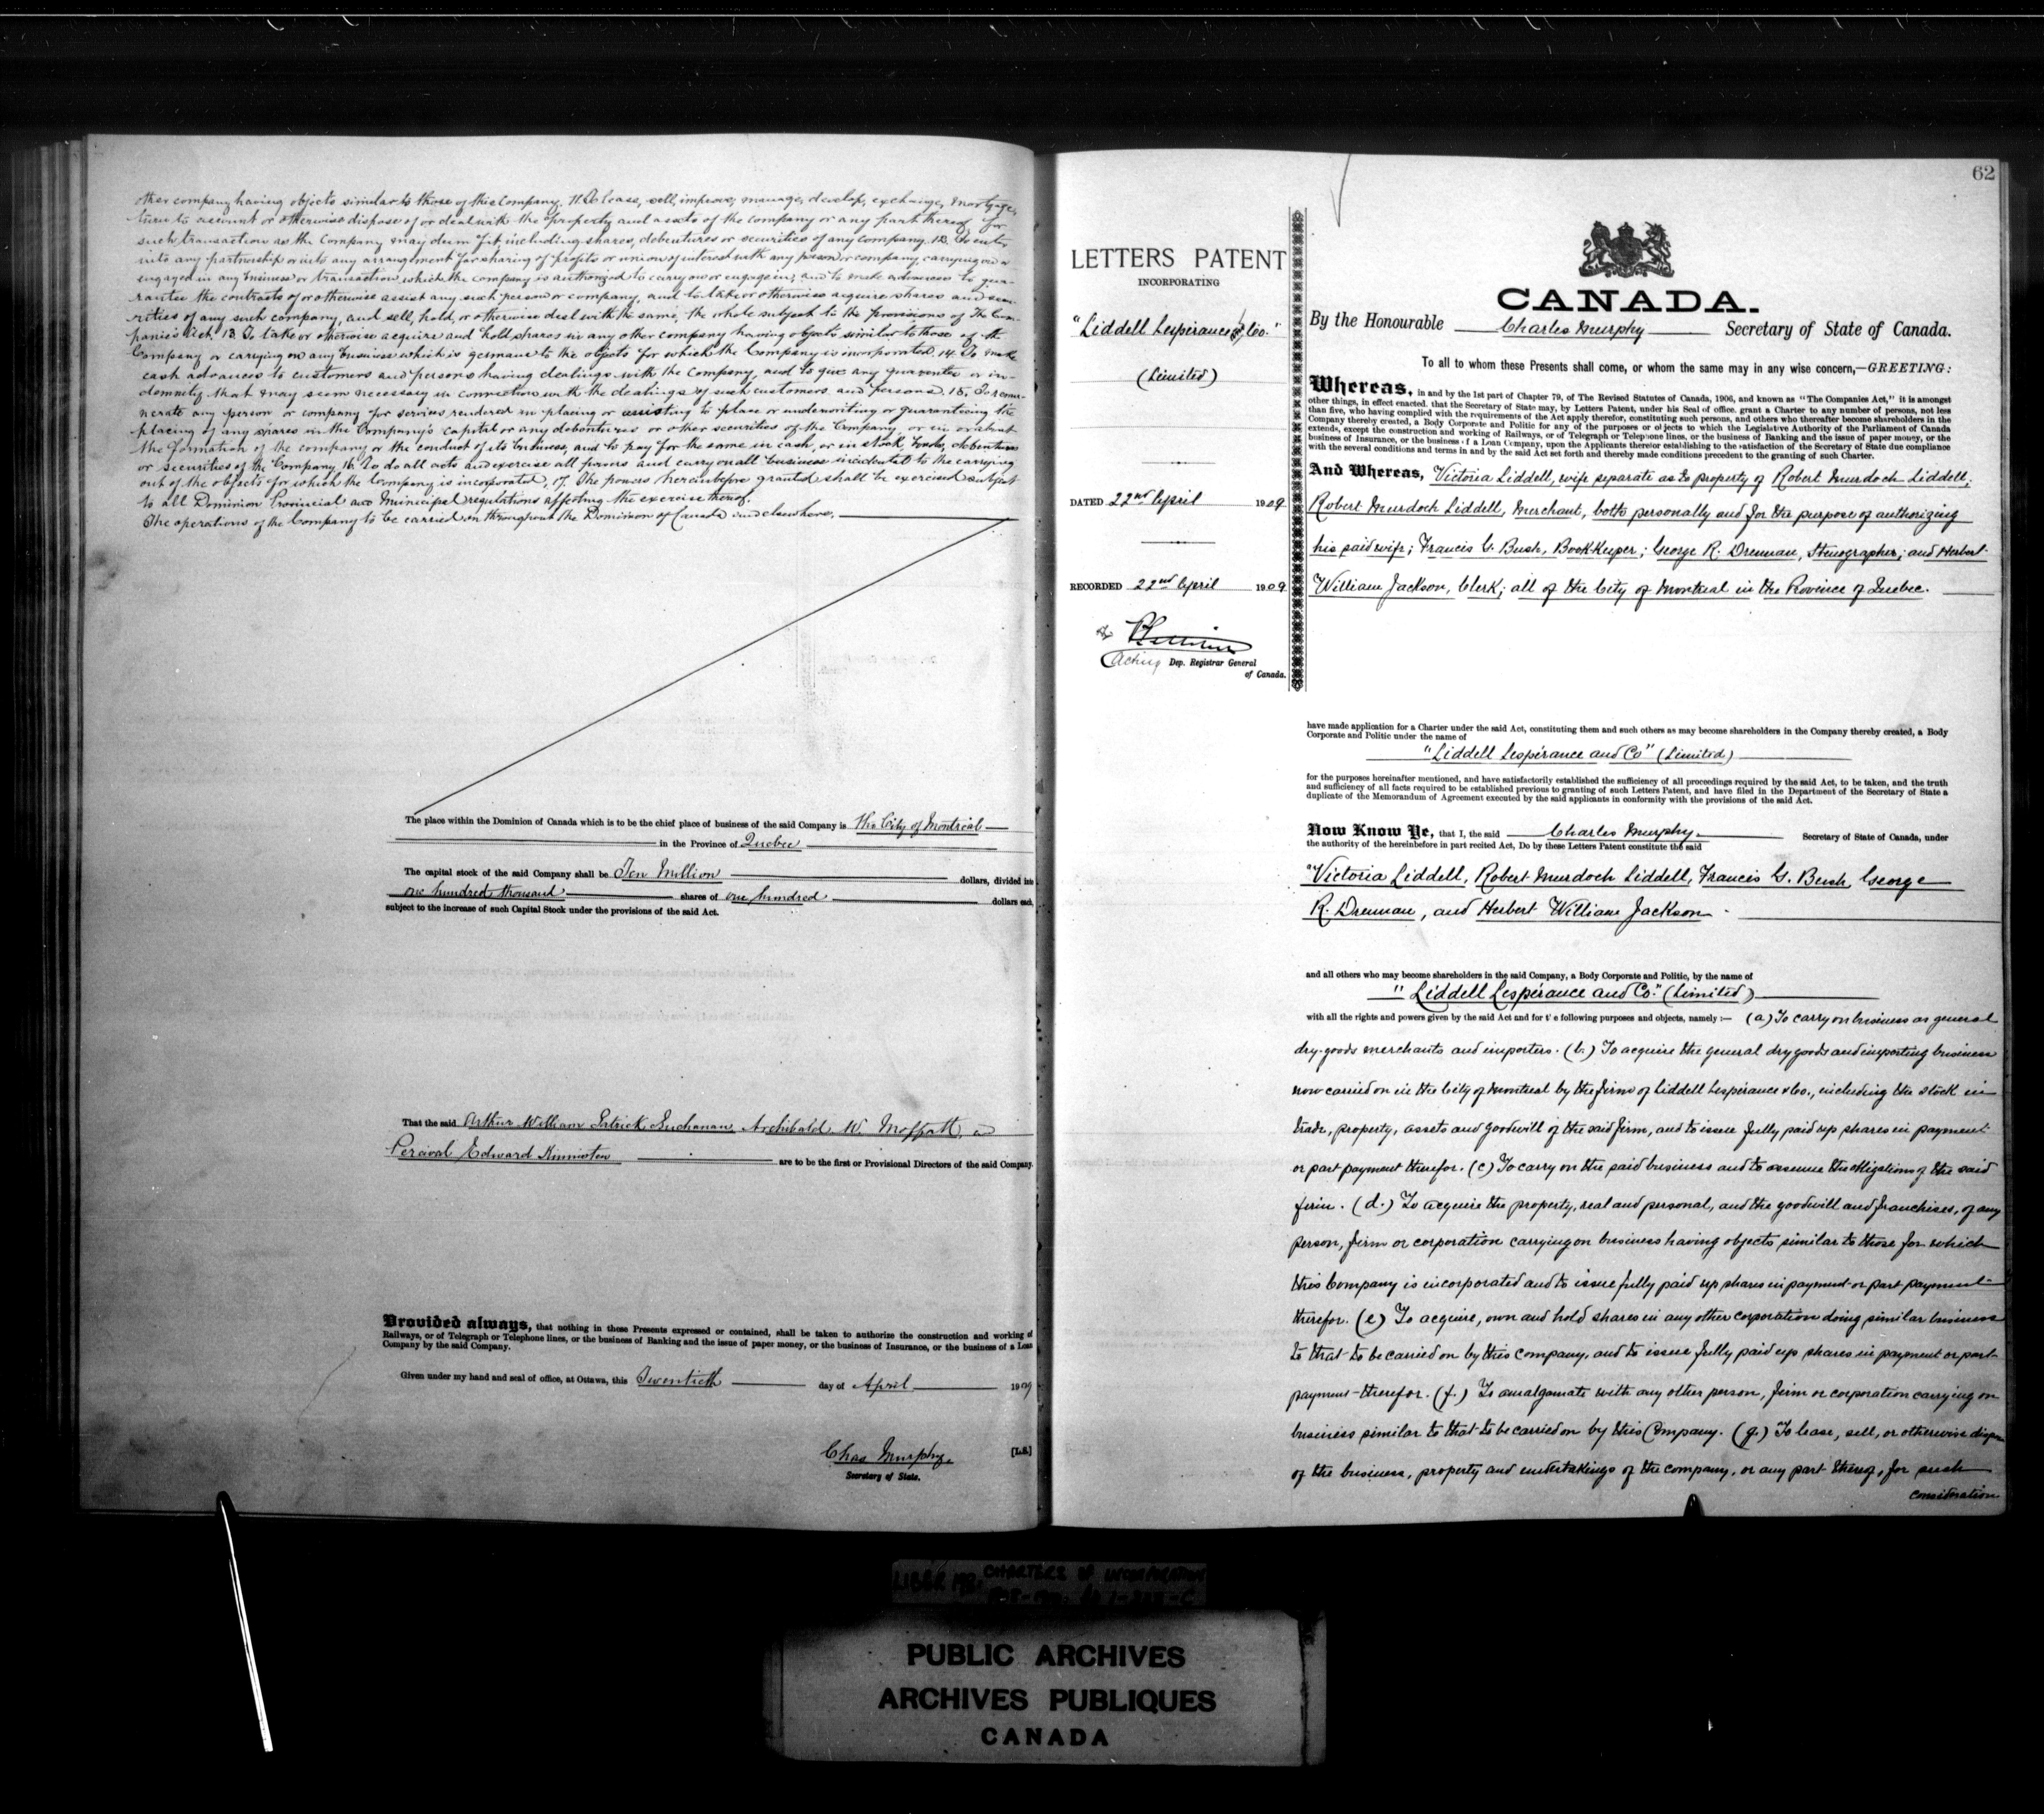 other company having objects similar to those of this Company. 11. To lease, sell, improve, manage, develop, exchange, mortgage,
turn to account or otherwise dispose of or deal with the property and assets of the company or any part thereof for
such transaction as the Company may deem fit including shares, debentures or securities of any company. 12. To enter
into any partnership or into any arrangement for sharing of profits or union of interest with any person or company carrying on or
engaged in any business or transaction which the company is authorized to carry on or engage in; and to make advances to gua-
rantee the contracts of or otherwise assist any such person or company, and to take or otherwise acquire shares and secu-
rities of any such company, and sell, hold, or otherwise deal with the same, the whole subject to the provisions of The Com-
panies Act. 13. To take or otherwise acquire and hold shares in any other company having objects similar to those of the
Company or carrying on any business which is germane to the objects for which the Company is incorporated. 14. To make
cash advances to customers and persons having dealings with the Company, and to give any guarantee or in-
demnity that may seem necessary in connection with the dealings of such customers and persons. 15. To remu-
nerate any person or company for services rendered in placing or assisting to place or underwriting or guaranteeing the
placing of any shares in the Company's capital or any debentures or other securities of the Company, or in or about
the formation of the company or the conduct of its business, and to pay for the same in cash, or in stock, bonds, debentures
or securities of the Company. 16. To do all acts and exercise all powers and carry on all business incidental to the carrying
out of the objects for which the Company is incorporated. 17. The powers hereinbefore granted shall be exercised subject
to all Dominion Provincial and Municipal regulations affecting the exercise thereof.
The operations of the Company to be carried on throughout the Dominion of Canada and elsewhere.
The place within the Dominion of Canada which is to be the chief place of business of the said Company is The City of Montreal
in the Province of Quebec
The capital stock of the said Company shall be Ten Million dollars, divided into
one hundred thousand shares of one hundred dollars each,
subject to the increase of such Capital Stock under the provisions of the said Act.
That the said Arthur William Patrick Buchanan, Archibald W. Moffatt, and
Percival Edward Kinniston are to be the first or Provisional Directors of the said Company.
Provided always, that nothing in these Presents expressed or contained, shall be taken to authorize the construction and working of
Railways, or of Telegraph or Telephone lines, or the business of Banking and the issue of paper money, or the business of Insurance, or the business of a Loan
Company by the said Company.
Given under my hand and seal of office, at Ottawa, this Twentieth day of April 1909
Chas Murphy. [L.S.]
Secretary of State.
62
LETTERS PATENT
INCORPORATING
"Liddell Lesperance & Co."
(Limited)
DATED 22nd April 1909
RECORDED 22nd April 1909
Acting Dep. Registrar General
of Canada.
CANADA.
By the Honourable Charles Murphy Secretary of State of Canada.
To all to whom these Presents shall come, or whom the same may in any wise concern,—GREETING:
Whereas, in and by the 1st part of Chapter 79, of The Revised Statutes of Canada, 1906, and known as "The Companies Act," it is amongst
other things, in effect enacted, that the Secretary of State may, by Letters Patent, under his Seal of office, grant a Charter to any number of persons, not less
than five, who having complied with the requirements of the Act apply therefor, constituting such persons, and others who thereafter become shareholders in the
Company thereby created, a Body Corporate and Politic for any of the purposes or objects to which the Legislative Authority of the Parliament of Canada
extends, except the construction and working of Railways, or of Telegraph or Telephone lines, or the business of Banking and the issue of paper money, or the
business of Insurance, or the business of a Loan Company, upon the Applicants therefor establishing to the satisfaction of the Secretary of State due compliance
with the several conditions and terms in and by the said Act set forth and thereby made conditions precedent to the granting of such Charter.
And Whereas, Victoria Liddell, wife separate as to property of Robert Murdoch Liddell;
Robert Murdoch Liddell, Merchant, both personally and for the purpose of authorizing
his said wife; Francis G. Bush, Book-Keeper; George R. Drennan, Stenographer; and Herbert
William Jackson, Clerk; all of the City of Montreal in the Province of Quebec.
have made application for a Charter under the said Act, constituting them and such others as may become shareholders in the Company thereby created, a Body
Corporate and Politic under the name of
"Liddell Lespérance and Co" (Limited)
for the purposes hereinafter mentioned, and have satisfactorily established the sufficiency of all proceedings required by the said Act, to be taken, and the truth
and sufficiency of all facts required to be established previous to granting of such Letters Patent, and have filed in the Department of the Secretary of State a
duplicate of the Memorandum of Agreement executed by the said applicants in conformity with the provisions of the said Act.
Now Know Ye, that I, the said Charles Murphy. Secretary of State of Canada, under
the authority of the hereinbefore in part recited Act, Do by these Letters Patent constitute the said
"Victoria Liddell, Robert Murdoch Liddell, Francis G. Bush, George
R. Drennan, and Herbert William Jackson
and all others who may become shareholders in the said Company, a Body Corporate and Politic, by the name of
"Liddell Lespérance and Co." (Limited)
with all the rights and powers given by the said Act and for the following purposes and objects, namely :— (a) To carry on business as general
dry-goods merchants and importers. (b.) To acquire the general dry goods and importing business
now carried on in the City of Montreal by the firm of Liddell Lesperance & Co., including the stock in
trade, property, assets and goodwill of the said firm, and to issue fully paid up shares in payment
or part payment therefor. (c) To carry on the said business and to assume the obligations of the said
firm. (d.) To acquire the property, real and personal, and the goodwill and franchises, of any
person, firm or corporation carrying on business having objects similar to those for which
this Company is incorporated and to issue fully paid up shares in payment or part payment
therefor. (e) To acquire, own and hold shares in any other corporation doing similar business
to that to be carried on by this company, and to issue fully paid up shares in payment or part
payment therefor. (f.) To amalgamate with any other person, firm or corporation carrying on
business similar to that to be carried on by this Company. (g.) To lease, sell, or otherwise dispose
of the business, property and undertakings of the company, or any part thereof, for such
consideration
CHARTERS OF INCORPORATION
PUBLIC ARCHIVES
ARCHIVES PUBLIQUES
CANADA